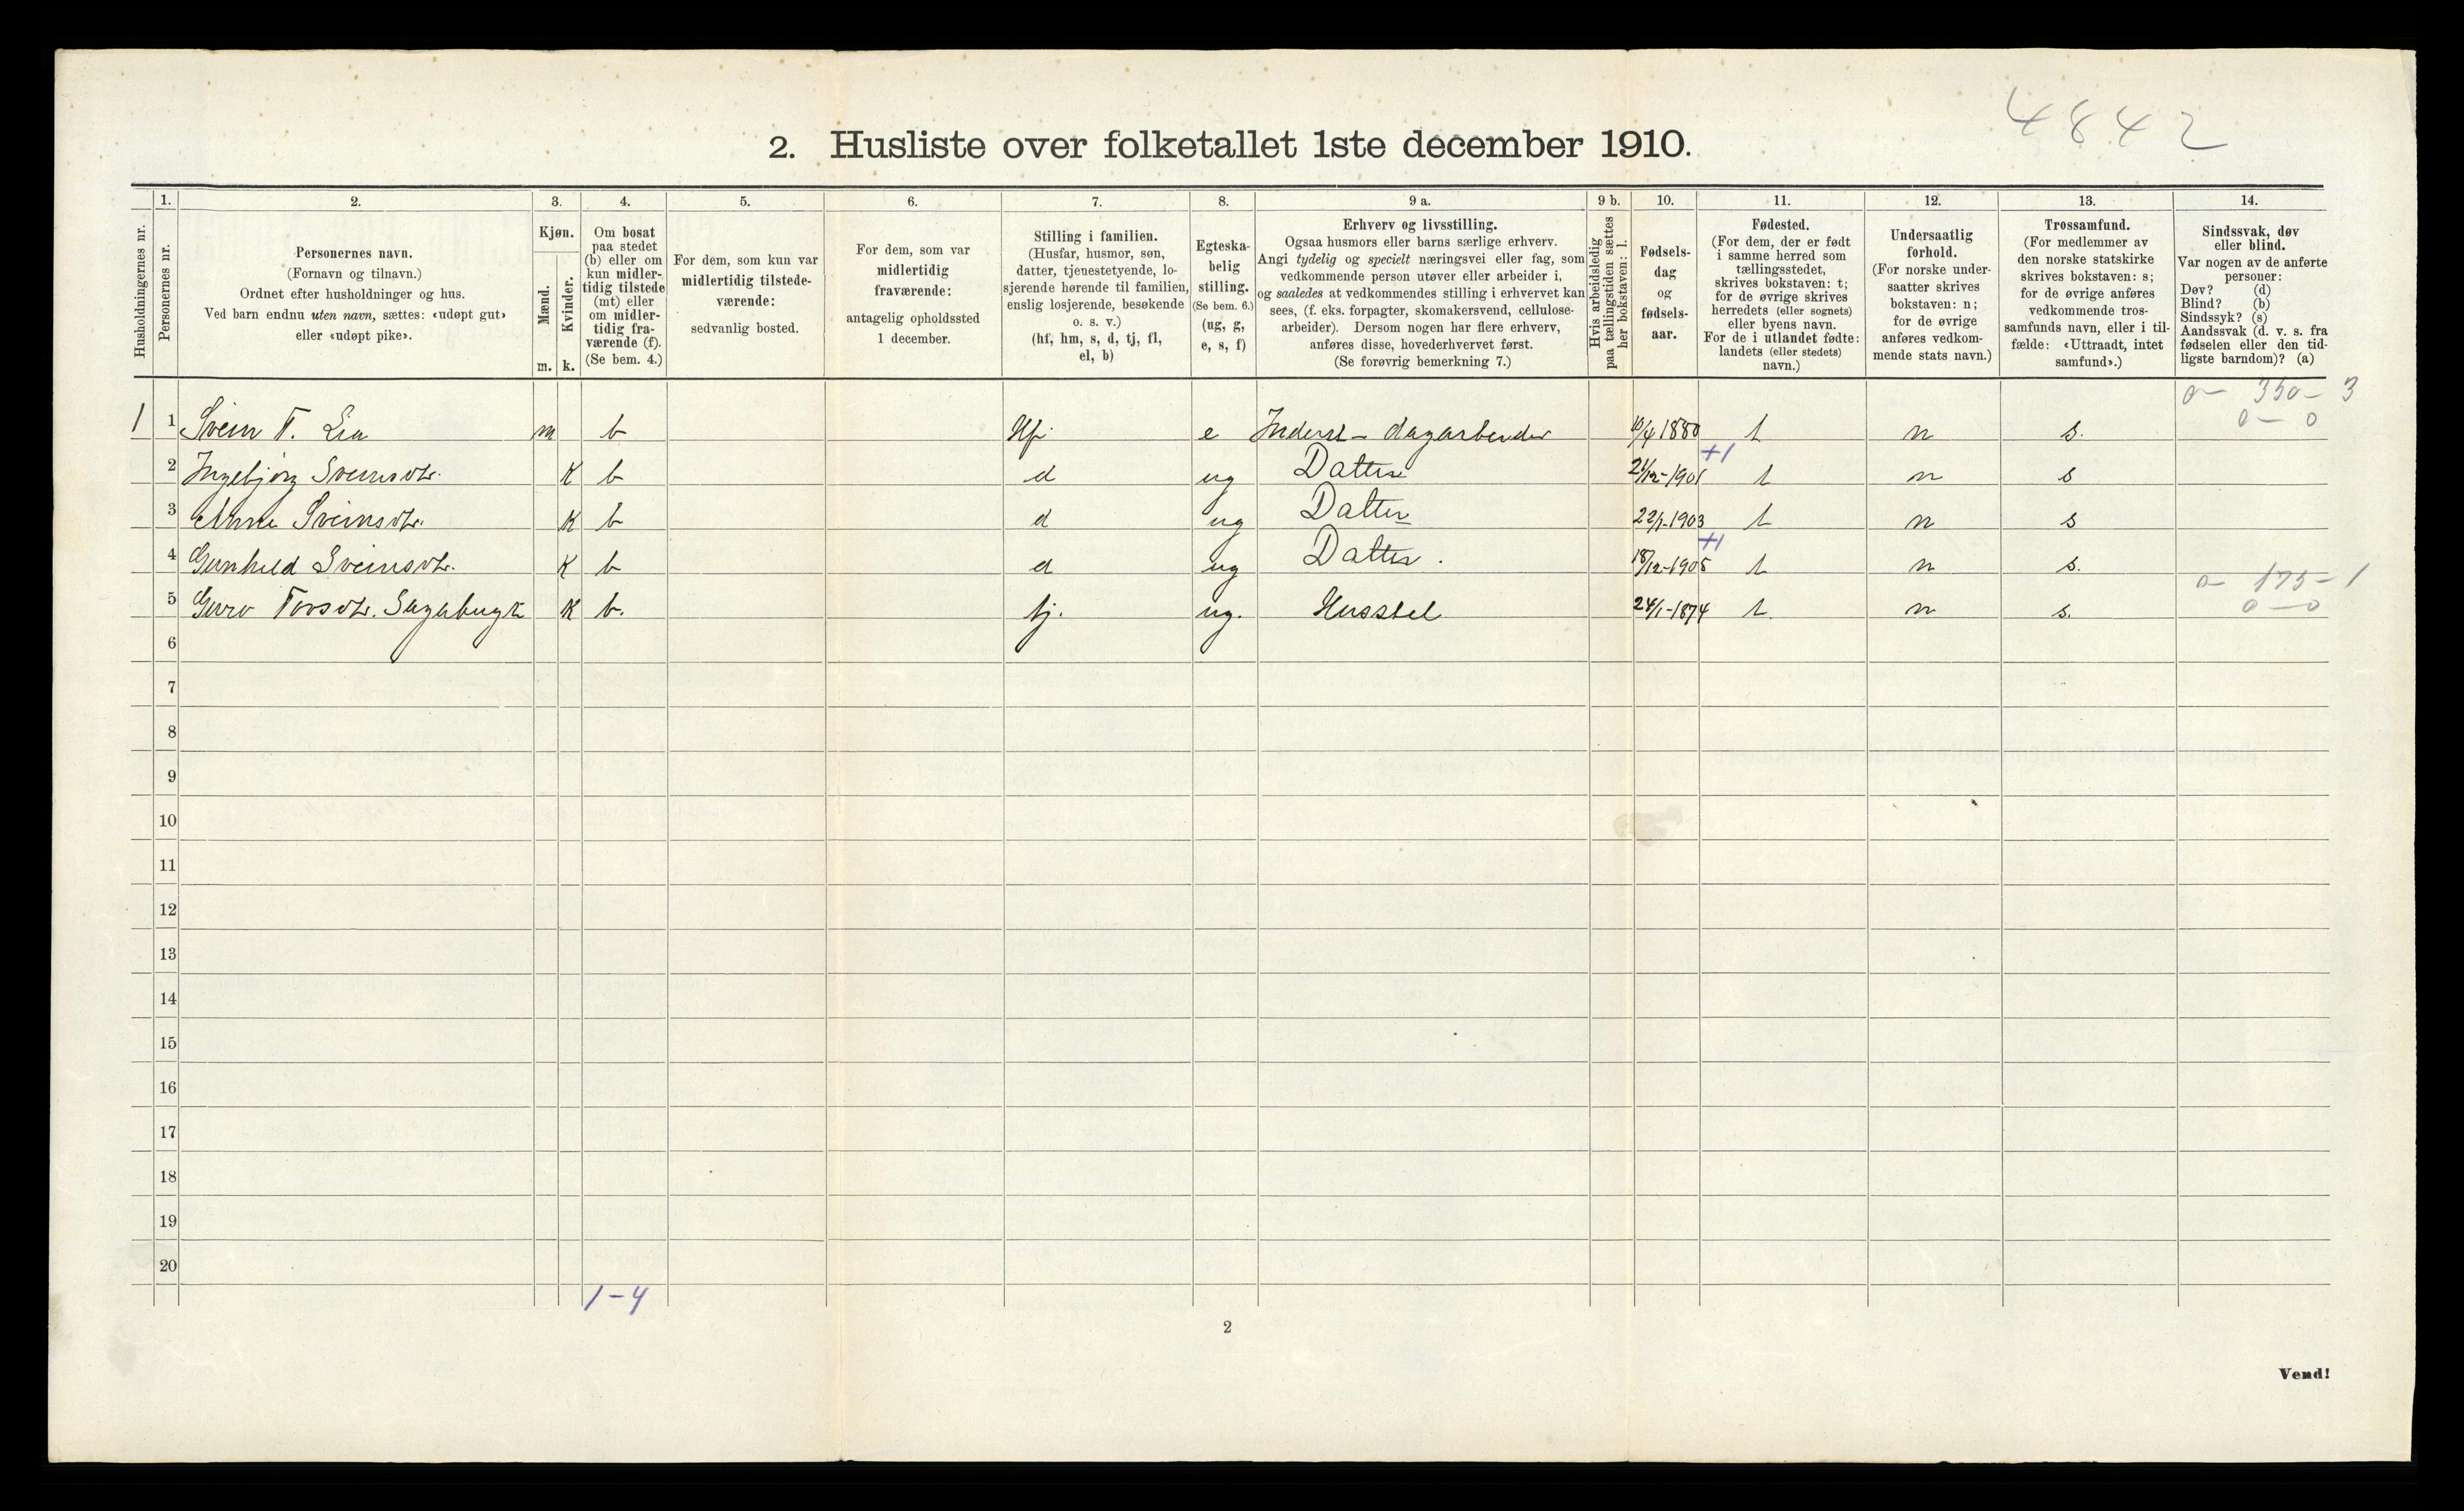 4842
2. Husliste over folketallet 1ste december 1910.
Husholdningernes nr.
1.
Personernes nr.
2.
Personernes navn.
(Fornavn og tilnavn.)
Ordnet efter husholdninger og hus.
Ved barn endnu uten navn, sættes: «udøpt gut»
eller «udøpt pike».
3.
Kjøn.
Mænd.
Kvinder.
m.
k.
4.
Om bosat
paa stedet
(b) eller om
kun midler-
tidig tilstede
(mt) eller
om midler-
tidig fra-
værende (f).
(Se bem. 4.)
5.
For dem, som kun var
midlertidig tilstede-
værende:
sedvanlig bosted.
6.
For dem, som var
midlertidig
fraværende:
antagelig opholdssted
1 december.
7.
Stilling i familien.
(Husfar, husmor, søn,
datter, tjenestetyende, lo-
sjerende hørende til familien,
enslig losjerende, besøkende
o. s. v.)
(hf, hm, s, d, tj, fl,
el, b)
8.
Egteska-
belig
stilling.
(Se bem. 6.)
(ug, g,
e, s, f)
9 a.
Erhverv og livsstilling.
Ogsaa husmors eller barns særlige erhverv.
Angi tydelig og specielt næringsvei eller fag, som
vedkommende person utøver eller arbeider i,
og saaledes at vedkommendes stilling i erhvervet kan
sees, (f. eks. forpagter, skomakersvend, cellulose-
arbeider). Dersom nogen har flere erhverv,
anføres disse, hovederhvervet først.
(Se forøvrig bemerkning 7.)
9 b.
Hvis arbeidsledig
paa tællingstiden sættes
her bokstaven: l.
10.
Fødsels-
dag
og
fødsels-
aar.
11.
Fødested.
(For dem, der er født
i samme herred som
tællingsstedet,
skrives bokstaven: t;
for de øvrige skrives
herredets (eller sognets)
eller byens navn.
For de i utlandet fødte:
landets (eller stedets)
navn.)
12.
Undersaatlig
forhold.
(For norske under-
saatter skrives
bokstaven: n;
for de øvrige
anføres vedkom-
mende stats navn.)
13.
Trossamfund.
(For medlemmer av
den norske statskirke
skrives bokstaven: s;
for de øvrige anføres
vedkommende tros-
samfunds navn, eller i til-
fælde: «Uttraadt, intet
samfund».)
14.
Sindssvak, døv
eller blind.
Var nogen av de anførte
personer:
Døv? (d)
Blind? (b)
Sindssyk? (s)
Aandssvak (d. v. s. fra
fødselen eller den tid-
ligste barndom)? (a)
0 – 350 – 3
0 – 0
1 1 Svein T. Lia m b Hf. e Inderst – dagarbeider 10/4 1880 t n s.
2 Ingebjørg Sveinsdtr. K b d ug Datter 21/12-1901 +1 t n s
3 Anne Sveinsdtr. K b d ug Datter 22/1-1903 t n s
4 Gunhild Sveinsdtr. K b d ug Datter. 18/12-1905 +1 t n s.
0 – 175 – 1
5 Guro Torsdtr. K b. tj. ug. Husstel 24/1-1874 t. n s. 0 – 0
6
7
8
9
10
11
12
13
14
15
16
17
18
19
20
1 – 4
2
Vend!